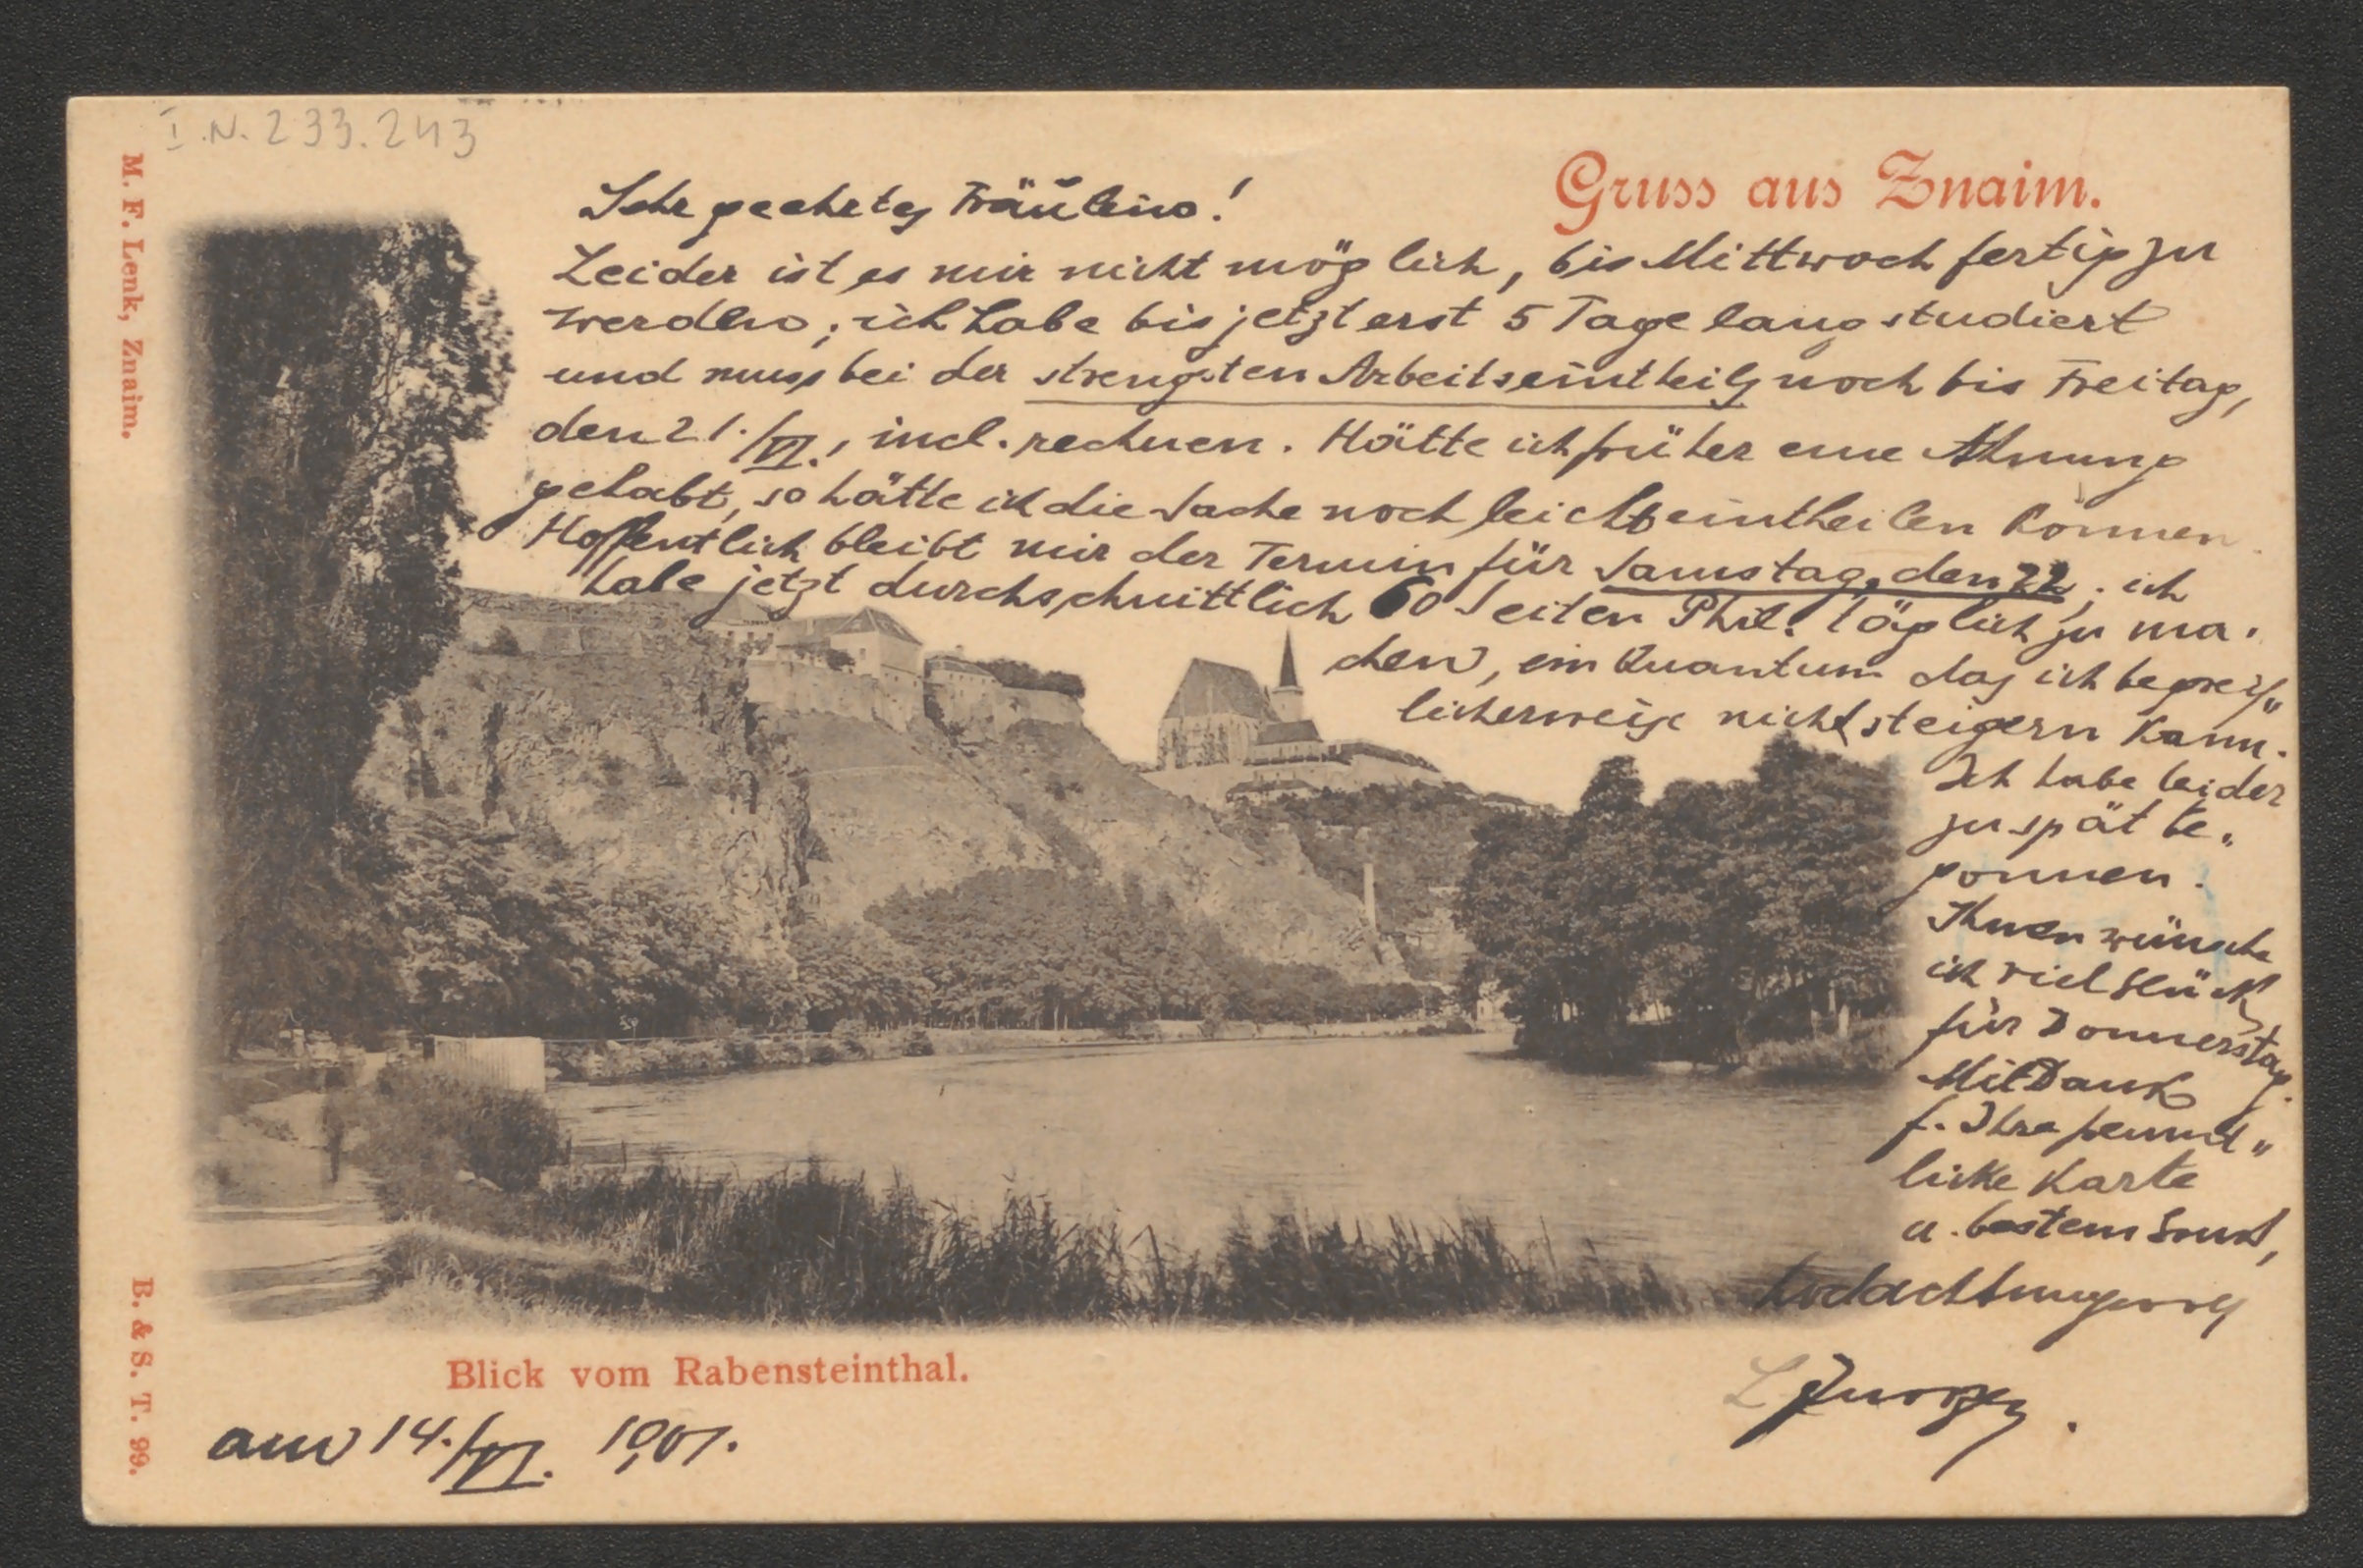 I.N. 233.243
Gruss aus Znaim.
M. F. Lenk, Znaim.
Sehr geehrtes Fräulein!
Leider ist es mir nicht möglich, bis Mittwoch fertig zu
werden; ich habe bis jetzt erst 5 Tage lang studiert
und muss bei der strengsten Arbeitseintheilg noch bis Freitag,
den 21./VI., incl. rechnen. Hätte ich früher eine Ahnung
gehabt, so hätte ich die Sache noch leicht eintheilen können.
Hoffentlich bleibt mir der Termin für Samstag, den 22.; ich
habe jetzt durchschnittlich 60 Seiten Phil. täglich zu ma-
chen, ein Quantum das ich begreif„
licherweise nicht steigern kann.
Ich habe leider
zu spät be„
gonnen.
Ihnen wünsche
ich viel Glück
für Donnerstag.
Mit Dank
f. Ihre freund„
liche Karte
u. bestem Gruß,
hochachtungsvoll
B. & S. T. 99.
Blick vom Rabensteinthal.
am 14./VI. 1901.